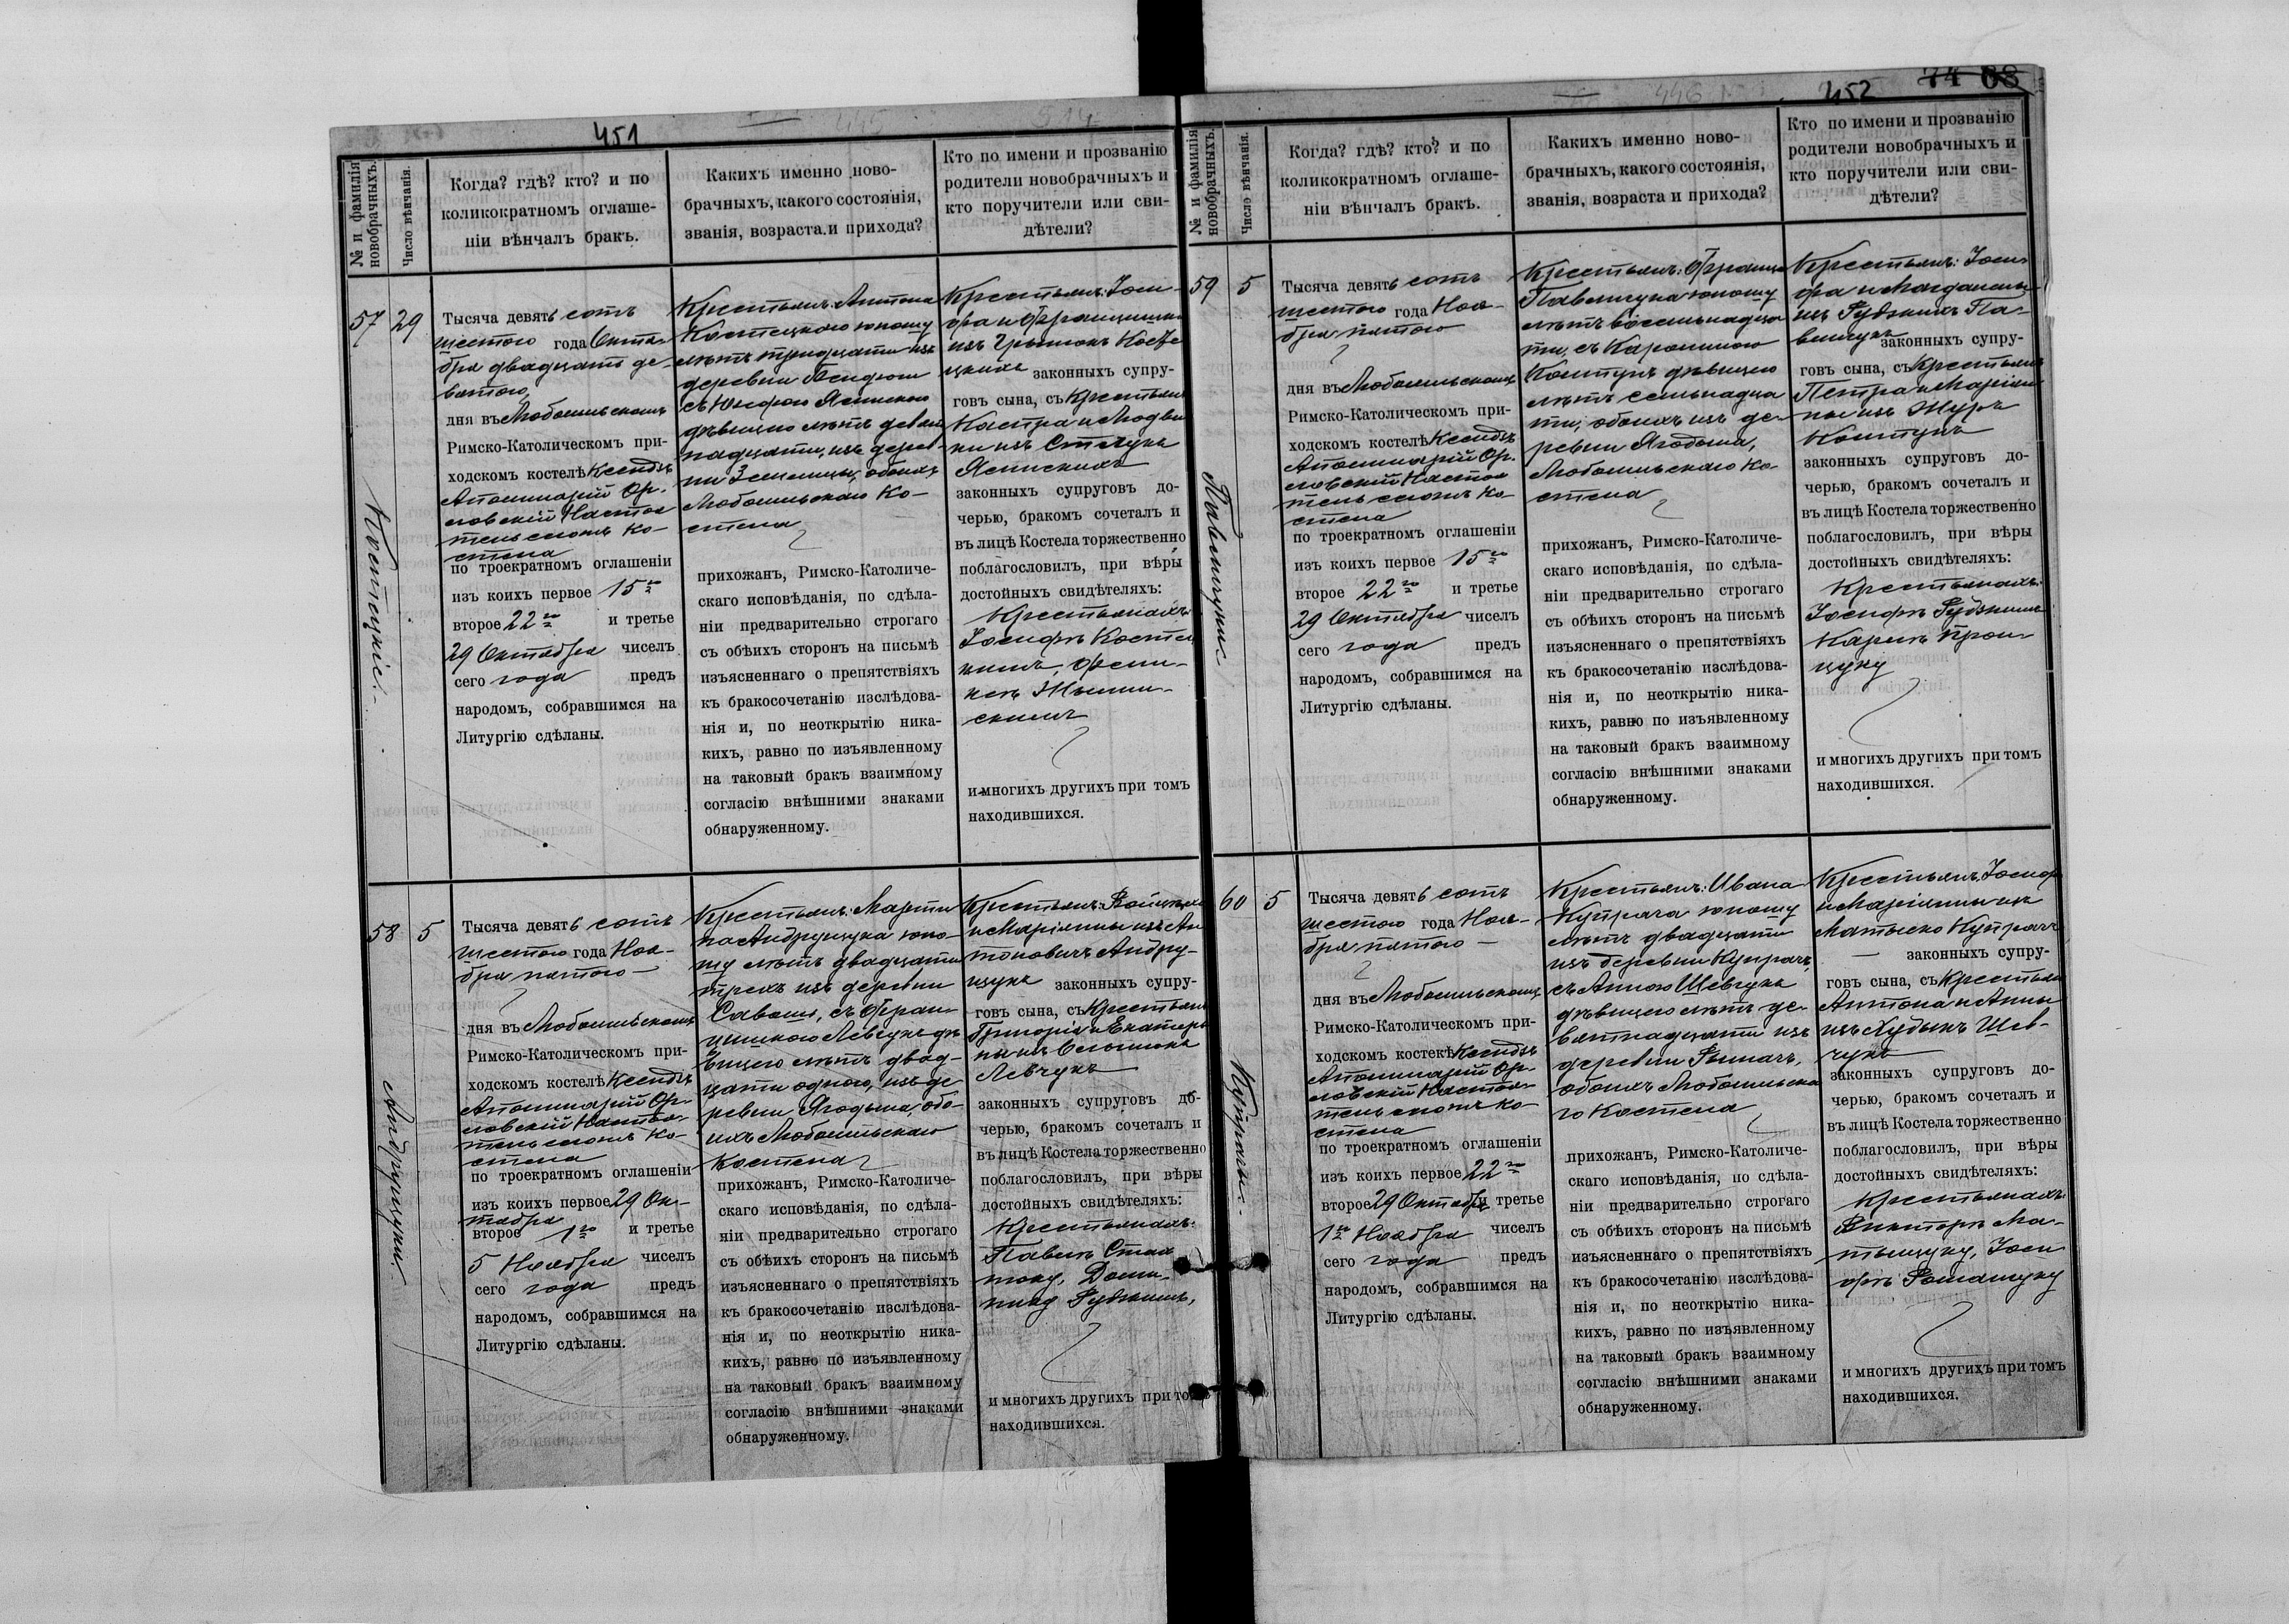 451
№ и фамилія новобрачныхъ.
Число вѣнчанія.
Когда? гдѣ? кто? и по
коликократномъ оглаше-
ніи вѣнчалъ бракъ.
Какихъ именно ново-
брачныхъ, какого состоянія,
званія, возраста и прихода?
Кто по имени и прозванію
родители новобрачныхъ и
кто поручители или сви-
дѣтели?
57
29
Костецкіе.
Тысяча девять сотъ
шестого года Октя-
бря двадцать де-
вятого,
дня въ Любомльскомъ
Римско-Католическомъ при-
ходскомъ костелѣ Ксендзъ
Аполинарій Ор-
ловскій Настоя
тель сего Ко-
стела
по троекратномъ оглашеніи
изъ коихъ первое 15го
второе 22го и третье
29 Октября чиселъ
сего года предъ
народомъ, собравшимся на
Литургію сдѣланы.
Крестьян: Антона
Костецкого юношу
лѣтъ тридцати изъ
деревни
съ Юзефою Ясинскою
дѣвицею лѣтъ девят
надцати, изъ дерев-
ни Землицы, обоихъ
Любомльскаго Ко-
стела
прихожанъ, Римско-Католиче-
скаго исповѣданія, по сдѣла-
ніи предварительно строгаго
съ обѣихъ сторонъ на письмѣ
изъясненнаго о препятствіяхъ
къ бракосочетанію изслѣдова-
нія и, по неоткрытію ника-
кихъ, равно по изъявленному
на таковый бракъ взаимному
согласію внѣшними знаками
обнаруженному.
Крестьян: Іоси-
фа и Францишки
изъ Косте
цкихъ законныхъ супру-
говъ сына, съ Крестьян
и Людви
ки изъ
Ясинскихъ
законныхъ супруговъ до-
черью, бракомъ сочеталъ и
въ лицѣ Костела торжественно
поблагословилъ, при вѣры
достойныхъ свидѣтеляхъ:
Крестьянахъ
Іосифѣ Костец
кимъ,

скимъ
и многихъ другихъ при томъ
находившихся.
58
5
Андрущуки.
Тысяча девять сотъ
шестого года Ноя-
бря пятого
дня въ Любомльскомъ
Римско-Католическомъ при-
ходскомъ костелѣ Ксендзъ
Аполинарій Ор-
ловскій Настоя-
тель сего Ко-
стела
по троекратномъ оглашеніи
изъ коихъ первое 29 Ок-
тября
второе 1го и третье
5 Ноября чиселъ
сего года предъ
народомъ, собравшимся на
Литургію сдѣланы.
Крестьян: Марти
на Андрущука юно-
шу лѣтъ двадцати
трехъ изъ деревни
съ Фран
цишкою Левчукъ дѣ
вицею лѣтъ двад-
цати одного, изъ де
ревни Ягодына, обо-
ихъ Любомльскаго
Костела
прихожанъ, Римско-Католиче-
скаго исповѣданія, по сдѣла-
ніи предварительно строгаго
съ обѣихъ сторонъ на письмѣ
изъясненнаго о препятствіяхъ
къ бракосочетанію изслѣдова-
нія и, по неоткрытію ника-
кихъ, равно по изъявленному
на таковый бракъ взаимному
согласію внѣшними знаками
обнаруженному.
Крестьян:
и Маріянны изъ Ан
тоновичъ Андру-
щукъ законныхъ супру-
говъ сына, съ Крестьян
Григорія и Екатери
ны изъ
Левчукъ
законныхъ супруговъ до-
черью, бракомъ сочеталъ и
въ лицѣ Костела торжественно
поблагословилъ, при вѣры
достойныхъ свидѣтеляхъ:
Крестьянахъ:
Павелъ
Доми-
никѣ Рудзкимъ,
и многихъ другихъ при томъ
находившихся.
452
74 68
№ и фамилія новобрачныхъ.
Число вѣнчанія.
Когда? гдѣ? кто? и по
коликократномъ оглаше-
ніи вѣнчалъ бракъ.
Какихъ именно ново-
брачныхъ, какого состоянія,
званія, возраста и прихода?
Кто по имени и прозванію
родители новобрачныхъ и
кто поручители или сви-
дѣтели?
59
5
Павлищуки
Тысяча девять сотъ
шестого года Ноя-
бря пятого
дня въ Любомльскомъ
Римско-Католическомъ при-
ходскомъ костелѣ Ксендзъ
Аполинарій Ор-
ловскій Настоя
тель сего Ко-
стела
по троекратномъ оглашеніи
изъ коихъ первое 15го
второе 22го и третье
29 Октября чиселъ
сего года предъ
народомъ, собравшимся на
Литургію сдѣланы.
Крестьян: Франца
Павлищука юношу
лѣтъ восемнадца
ти, съ Каролиною
Ковтунъ дѣвицею
лѣтъ семнадца
ти, обоихъ изъ де-
ревни Ягодына,
Любомльскаго Ко-
стела
прихожанъ, Римско-Католиче-
скаго исповѣданія, по сдѣла-
ніи предварительно строгаго
съ обѣихъ сторонъ на письмѣ
изъясненнаго о препятствіяхъ
къ бракосочетанію изслѣдова-
нія и, по неоткрытію ника-
кихъ, равно по изъявленному
на таковый бракъ взаимному
согласію внѣшними знаками
обнаруженному.
Крестьян: Іоси-
фа и Магдалены
изъ Рудзкихъ Па-
влищукъ законныхъ супру-
говъ сына, съ Крестьян
Петра и Маріян-
ны изъ Журъ
Ковтунъ
законныхъ супруговъ до-
черью, бракомъ сочеталъ и
въ лицѣ Костела торжественно
поблагословилъ, при вѣры
достойныхъ свидѣтеляхъ:
Крестьянахъ:
Іосифѣ Рудзкимъ
Карлѣ
щуку
и многихъ другихъ при томъ
находившихся.
60
5
Купрачи.
Тысяча девять сотъ
шестого года Ноя-
бря пятого
дня въ Любомльскомъ
Римско-Католическомъ при-
ходскомъ костелѣ Ксендзъ
Аполинарій Ор-
ловскій Настоя-
тель сего Ко-
стела
по троекратномъ оглашеніи
изъ коихъ первое 22го
второе 29 Октября и третье
1го Ноября чиселъ
сего года предъ
народомъ, собравшимся на
Литургію сдѣланы.
Крестьян: Ивана
Купрача юношу
лѣтъ двадцати
изъ деревни Купрачъ,
съ Анною Шевчукъ
дѣвицею лѣтъ де-
вятнадцати изъ
деревни Рымачъ,
обоихъ Любомльска
го Костела
прихожанъ, Римско-Католиче-
скаго исповѣданія, по сдѣла-
ніи предварительно строгаго
съ обѣихъ сторонъ на письмѣ
изъясненнаго о препятствіяхъ
къ бракосочетанію изслѣдова-
нія и, по неоткрытію ника-
кихъ, равно по изъявленному
на таковый бракъ взаимному
согласію внѣшними знаками
обнаруженному.
Крестьян: Іосифа
и Маріянны изъ
Матыско Купрачъ
законныхъ супру-
говъ сына, съ Крестьян
Антона и Анны
изъ Шев-
чукъ
законныхъ супруговъ до-
черью, бракомъ сочеталъ и
въ лицѣ Костела торжественно
поблагословилъ, при вѣры
достойныхъ свидѣтеляхъ:
Крестьянахъ:
Викторѣ Ма-
тыщуку, Іоси
фѣ Ромащуку
и многихъ другихъ при томъ
находившихся.